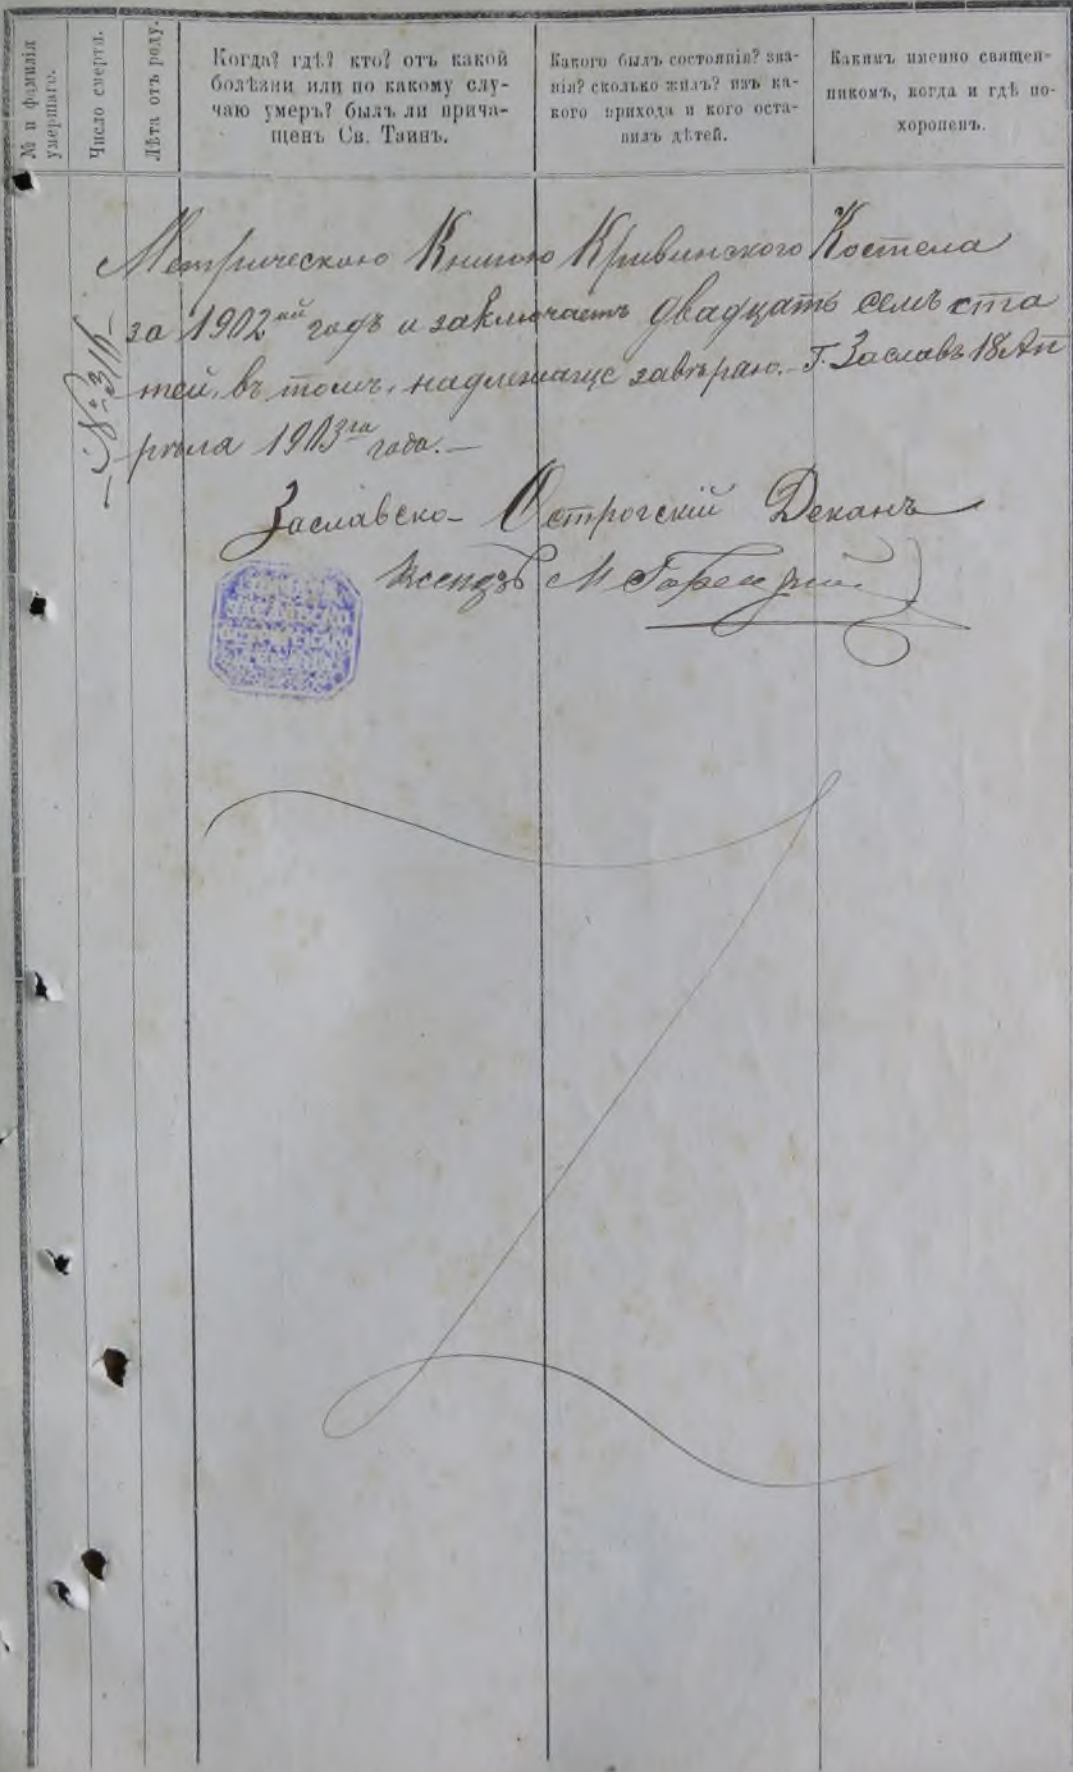 № и фамилія
умершаго.
Число смерти.
Лѣта отъ роду.
Когда? гдѣ? кто? отъ какой
болѣзни или по какому слу-
чаю умеръ? былъ ли прича-
щенъ Св. Таинъ.
Какого былъ состоянія? зва-
нія? сколько жилъ? изъ ка-
кого прихода и кого оста-
вилъ дѣтей.
Какимъ именно священ-
никомъ, когда и гдѣ по-
хороненъ.
Метрическою Книгою Кривинского Костела
за 1902ой годъ и заключаетъ двадцать семь ста
тей, въ томъ, надлежаще завѣраю. Г. Заславъ 18 Ап
рѣля 1903го года.—
№ 316
Заславско-Острогскій Деканъ
Ксендзъ М